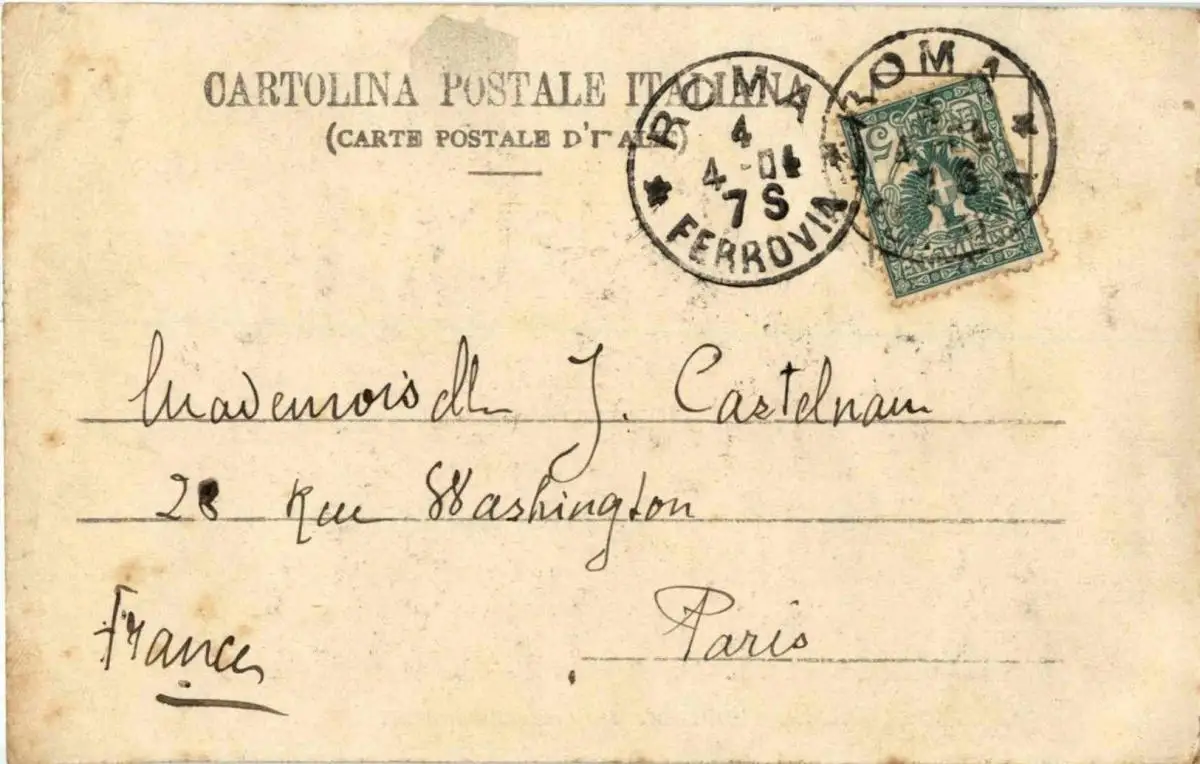 CARTOLINA POSTALE ITALIANA
(CARTE POSTALE D'ITALIE)
ROMA
4
4-04
7S
FERROVIA
ROMA
5
Mademoiselle J. Castelnau
28 Rue Washington
Paris
France